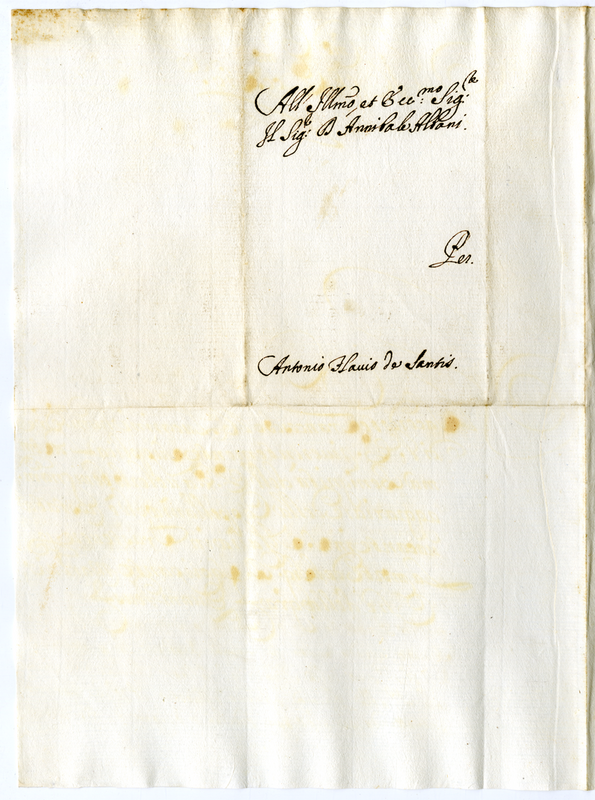 All Illmo, et Ecc:mo Sig:re
Il Sig:e D Annibale Albani.
Per.
Antonio Flauio de Santis.